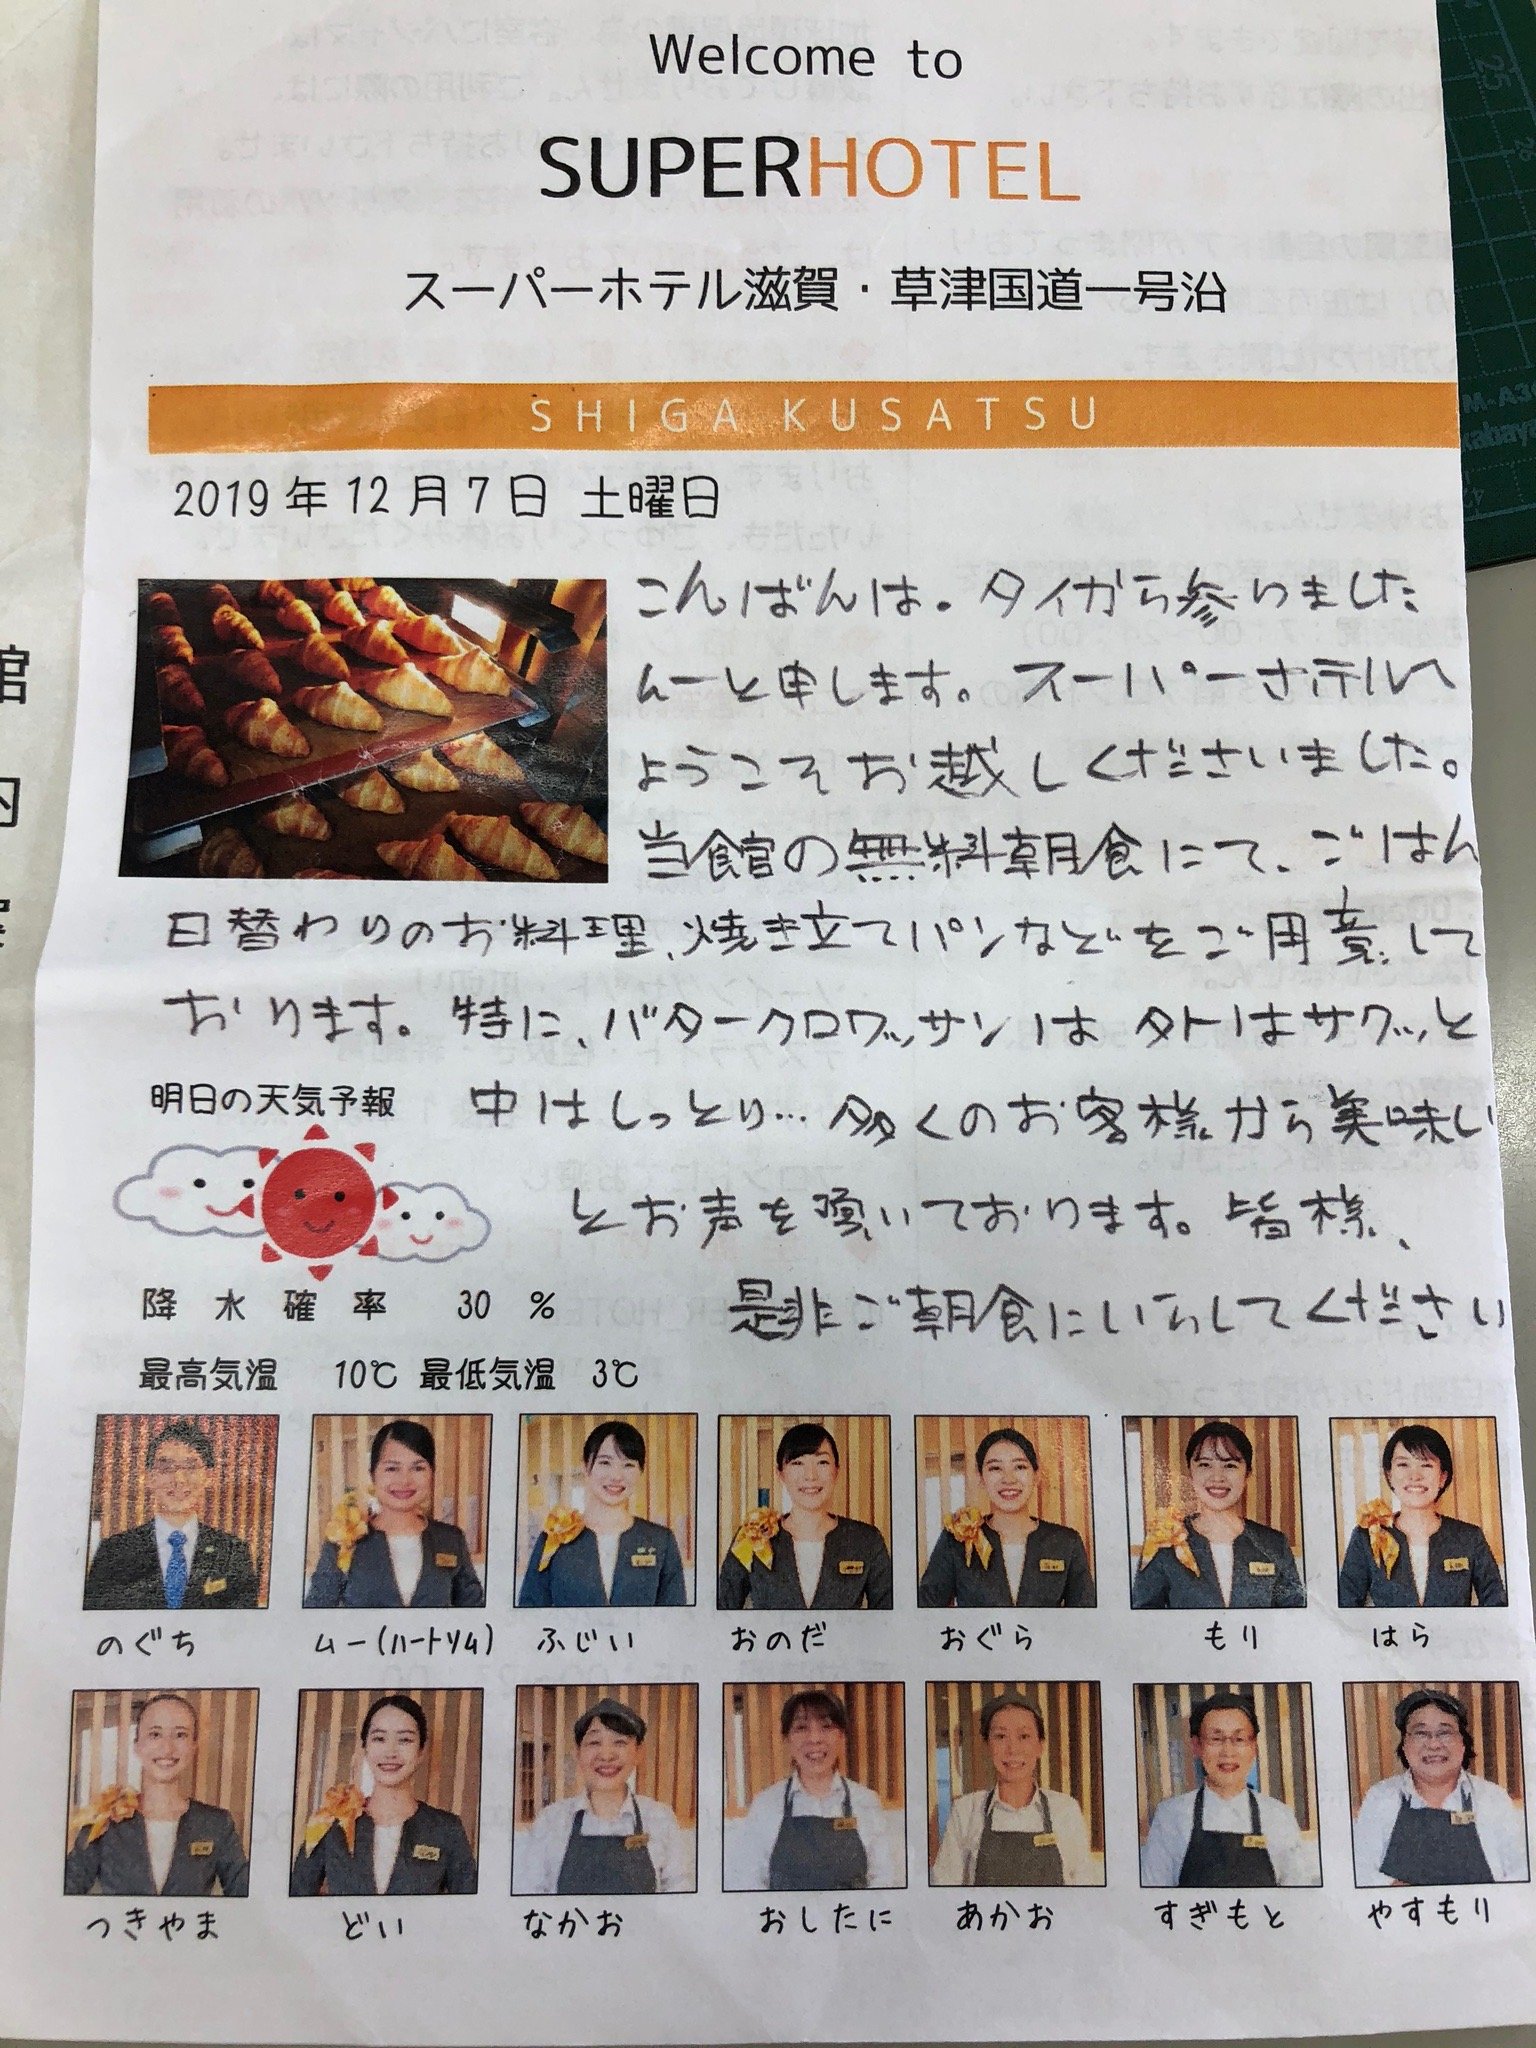 Welcome to
SUPERHOTEL
スーパーホテル滋賀・草津国道一号沿
SHIGA KUSATSU
2019年12月7日 土曜日
こんばんは。タイから参りました
んーと申します。スーパーホテルへ
ようこそお越しくださいました。
当館の無料朝食にて、ごはん
日替わりのお料理、焼き立てパンなどをご用意して
おります。特に、バタークロワッサンは外はサクッと
中はしっとり…多くのお客様から美味しい
とお声を頂いております。皆様、
是非ご朝食にいらしてください
明日の天気予報
降水確率 30 %
最高気温 10℃ 最低気温 3℃
のぐち ムー(ハートリム) ふじい おのだ おぐら もり はら
つきやま どい なかお おしたに あかお すぎもと やすもり
館
内
25
M-A3